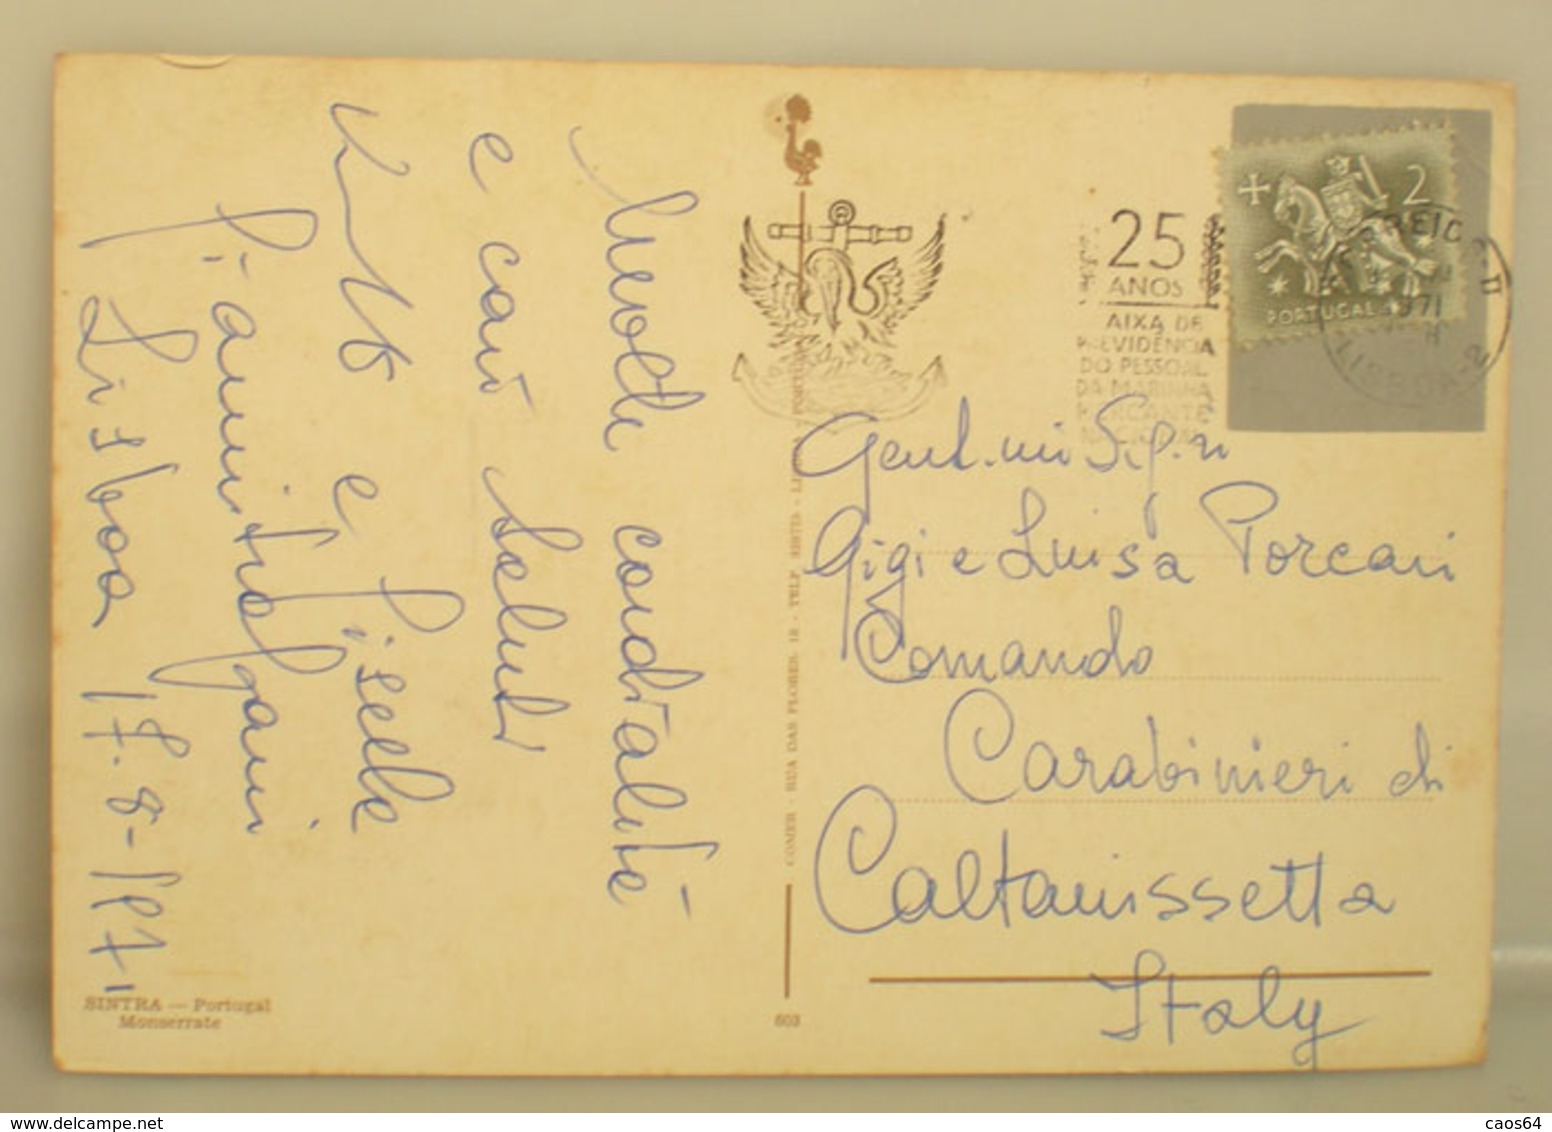 Molte cordialità
e cari saluti
e Gisella
Lisboa 17.8-1971
Gent.mi Sig.ri
Gigi e Luisa Porcari
Comando
Carabinieri di
Caltanissetta
Italy
25
ANOS
AIXA DE
PREVIDÊNCIA
DO PESSOAL
DA MARINHA
MERCANTE
NACIONAL
2
PORTUGAL
CORREIO
1971
LISBOA-2
COMER - RUA DAS FLORES. 18 - TELF
SINTRA — Portugal
Monserrate
603
www.delcampe.net
caos64